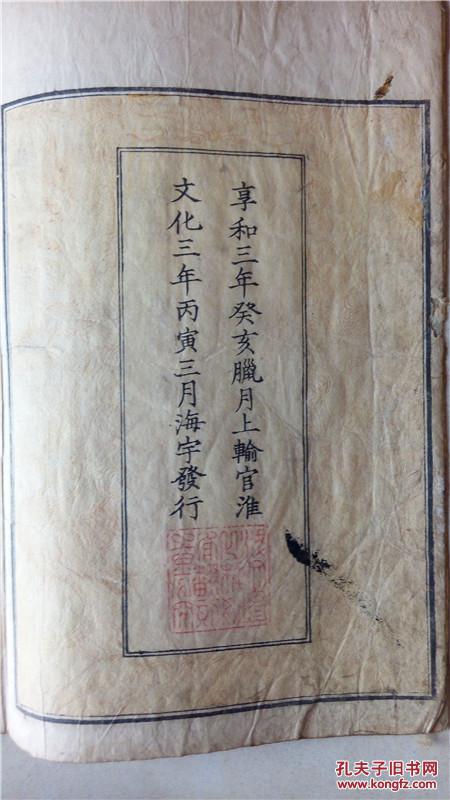 享和三年癸亥臘月上輸官淮
文化三年丙寅三月海宇發行
孔夫子旧书网
www.kongfz.com